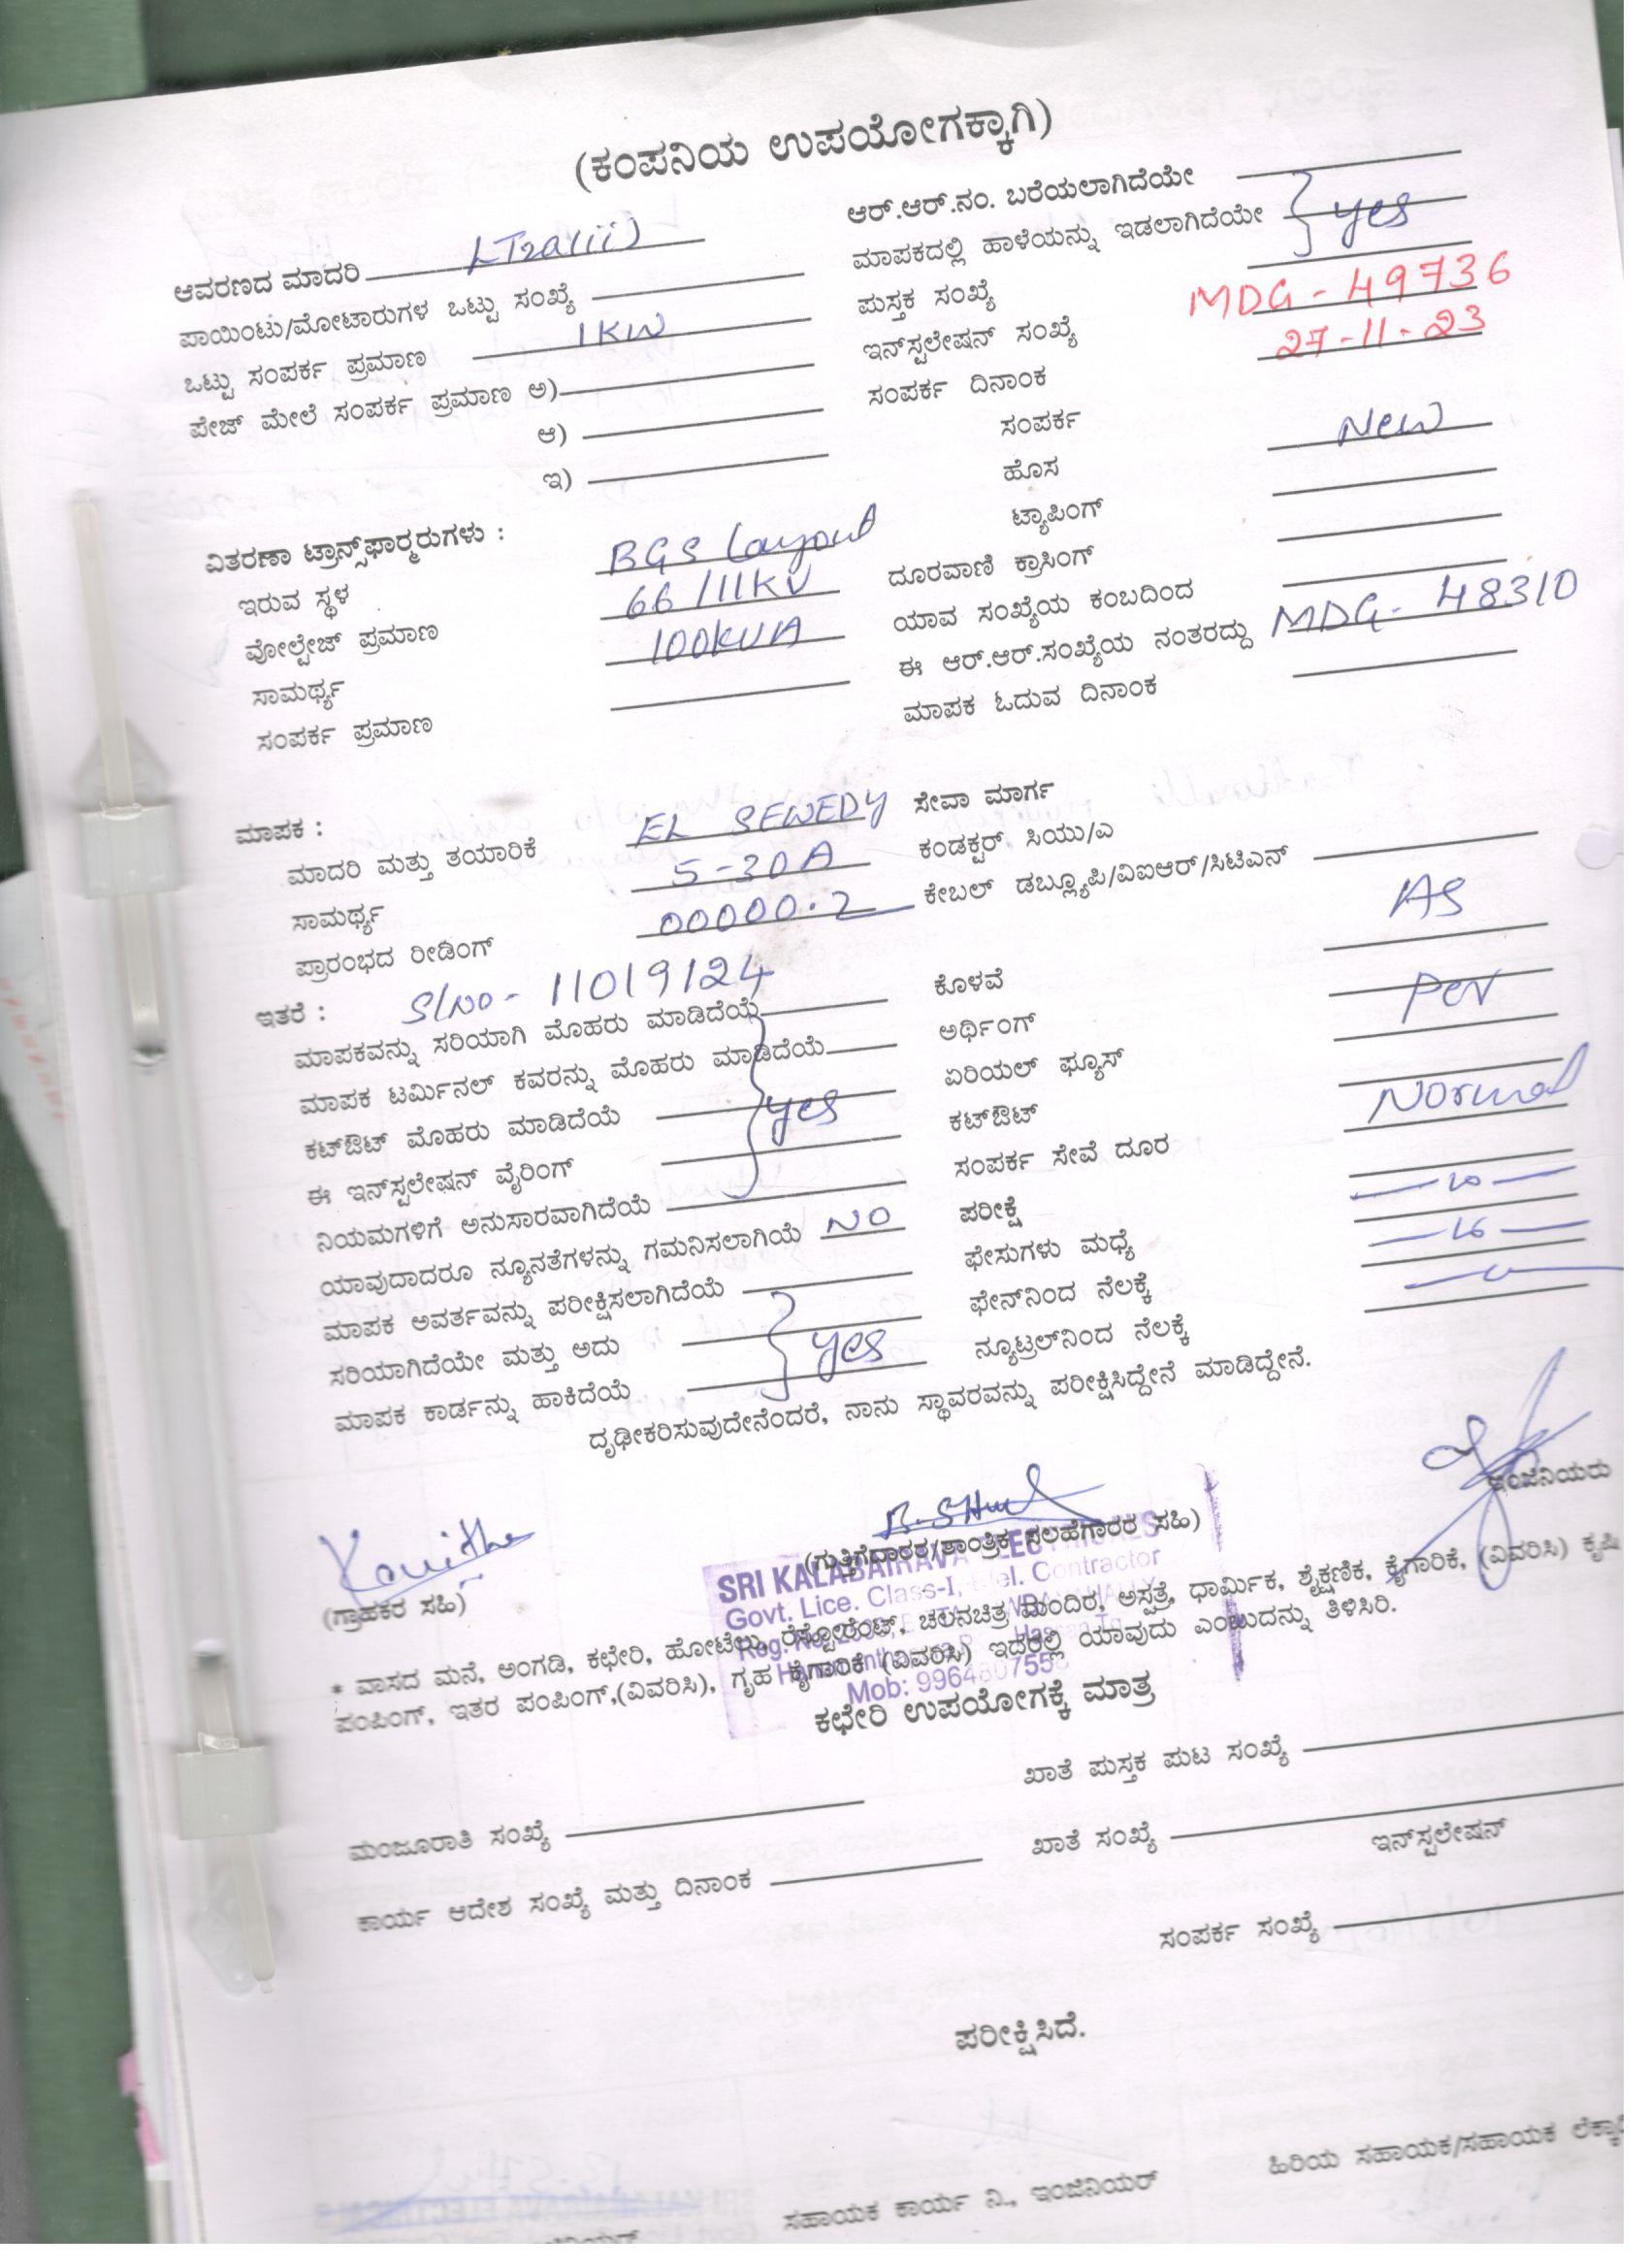 (ಕಂಪನಿಯ ಉಪಯೋಗಕ್ಕಾಗಿ)
ಆವರಣದ ಮಾದರಿ LT2a(ii)
ಪಾಯಿಂಟು/ಮೋಟಾರುಗಳ ಒಟ್ಟು ಸಂಖ್ಯೆ
ಒಟ್ಟು ಸಂಪರ್ಕ ಪ್ರಮಾಣ 1KW
ಪೇಜ್ ಮೇಲೆ ಸಂಪರ್ಕ ಪ್ರಮಾಣ ಅ)
ಆ)
ಇ)
ಆರ್.ಆರ್.ನಂ. ಬರೆಯಲಾಗಿದೆಯೇ
ಮಾಪಕದಲ್ಲಿ ಹಾಳೆಯನ್ನು ಇಡಲಾಗಿದೆಯೇ yes
ಪುಸ್ತಕ ಸಂಖ್ಯೆ
ಇನ್‌ಸ್ಟಲೇಷನ್ ಸಂಖ್ಯೆ MDG-49736
ಸಂಪರ್ಕ ದಿನಾಂಕ 27-11-23
ಸಂಪರ್ಕ
ಹೊಸ New
ಟ್ಯಾಪಿಂಗ್
ವಿತರಣಾ ಟ್ರಾನ್ಸ್‌ಫಾರ್ಮರುಗಳು :
ಇರುವ ಸ್ಥಳ BGS Layout
ವೋಲ್ಟೇಜ್ ಪ್ರಮಾಣ 66/11KV
ಸಾಮರ್ಥ್ಯ 100KVA
ಸಂಪರ್ಕ ಪ್ರಮಾಣ
ದೂರವಾಣಿ ಕ್ರಾಸಿಂಗ್
ಯಾವ ಸಂಖ್ಯೆಯ ಕಂಬದಿಂದ
ಈ ಆರ್.ಆರ್.ಸಂಖ್ಯೆಯ ನಂತರದ್ದು MDG-48310
ಮಾಪಕ ಓದುವ ದಿನಾಂಕ
ಮಾಪಕ :
ಮಾದರಿ ಮತ್ತು ತಯಾರಿಕೆ EL SEWEDY
ಸಾಮರ್ಥ್ಯ 5-30A
ಪ್ರಾರಂಭದ ರೀಡಿಂಗ್ 00000.2
ಸೇವಾ ಮಾರ್ಗ
ಕಂಡಕ್ಟರ್ ಸಿಯು/ಎ
ಕೇಬಲ್ ಡಬ್ಲ್ಯೂಪಿ/ವಿಐಆರ್/ಸಿಟಿಎನ್
ಇತರೆ : S/No- 11019124
ಮಾಪಕವನ್ನು ಸರಿಯಾಗಿ ಮೊಹರು ಮಾಡಿದೆಯೆ
ಮಾಪಕ ಟರ್ಮಿನಲ್ ಕವರನ್ನು ಮೊಹರು ಮಾಡಿದೆಯೆ
ಕಟ್‌ಔಟ್ ಮೊಹರು ಮಾಡಿದೆಯೆ yes
ಈ ಇನ್‌ಸ್ಟಲೇಷನ್ ವೈರಿಂಗ್
ನಿಯಮಗಳಿಗೆ ಅನುಸಾರವಾಗಿದೆಯೆ
ಯಾವುದಾದರೂ ನ್ಯೂನತೆಗಳನ್ನು ಗಮನಿಸಲಾಗಿಯೆ NO
ಮಾಪಕ ಅವರ್ತವನ್ನು ಪರೀಕ್ಷಿಸಲಾಗಿದೆಯೆ
ಸರಿಯಾಗಿದೆಯೇ ಮತ್ತು ಅದು yes
ಮಾಪಕ ಕಾರ್ಡನ್ನು ಹಾಕಿದೆಯೆ
AS
ಕೊಳವೆ
ಅರ್ಥಿಂಗ್ Per
ಏರಿಯಲ್ ಫ್ಯೂಸ್
ಕಟ್‌ಔಟ್
ಸಂಪರ್ಕ ಸೇವೆ ದೂರ Normal
ಪರೀಕ್ಷೆ
ಫೇಸುಗಳು ಮಧ್ಯೆ
ಫೇನ್‌ನಿಂದ ನೆಲಕ್ಕೆ
ನ್ಯೂಟ್ರಲ್‌ನಿಂದ ನೆಲಕ್ಕೆ
ದೃಢೀಕರಿಸುವುದೇನೆಂದರೆ, ನಾನು ಸ್ಥಾವರವನ್ನು ಪರೀಕ್ಷಿಸಿದ್ದೇನೆ ಮಾಡಿದ್ದೇನೆ.
ಇಂಜಿನಿಯರು
(ಗುತ್ತಿಗೆದಾರರ/ತಾಂತ್ರಿಕ ಸಲಹೆಗಾರರ ಸಹಿ)
(ಗ್ರಾಹಕರ ಸಹಿ)
SRI KALABAIRAVA ELECTRICALS
Govt. Lice. Class-I, El. Contractor
* ವಾಸದ ಮನೆ, ಅಂಗಡಿ, ಕಛೇರಿ, ಹೋಟೆಲು, ರೆಸ್ಟೋರೆಂಟ್, ಚಲನಚಿತ್ರ ಮಂದಿರ, ಅಸ್ಪತ್ರೆ, ಧಾರ್ಮಿಕ, ಶೈಕ್ಷಣಿಕ, ಕೈಗಾರಿಕೆ, (ವಿವರಿಸಿ) ಕೃಷಿ
ಪಂಪಿಂಗ್, ಇತರ ಪಂಪಿಂಗ್,(ವಿವರಿಸಿ), ಗೃಹ ಕೈಗಾರಿಕೆ (ವಿವರಿಸಿ) ಇದರಲ್ಲಿ ಯಾವುದು ಎಂಬುದನ್ನು ತಿಳಿಸಿರಿ.
ಕಛೇರಿ ಉಪಯೋಗಕ್ಕೆ ಮಾತ್ರ
ಖಾತೆ ಪುಸ್ತಕ ಪುಟ ಸಂಖ್ಯೆ
ಮಂಜೂರಾತಿ ಸಂಖ್ಯೆ
ಖಾತೆ ಸಂಖ್ಯೆ
ಇನ್‌ಸ್ಟಲೇಷನ್
ಕಾರ್ಯ ಆದೇಶ ಸಂಖ್ಯೆ ಮತ್ತು ದಿನಾಂಕ
ಸಂಪರ್ಕ ಸಂಖ್ಯೆ
ಪರೀಕ್ಷಿಸಿದೆ.
ಹಿರಿಯ ಸಹಾಯಕ/ಸಹಾಯಕ
ಸಹಾಯಕ ಕಾರ್ಯ ನಿ., ಇಂಜಿನಿಯರ್